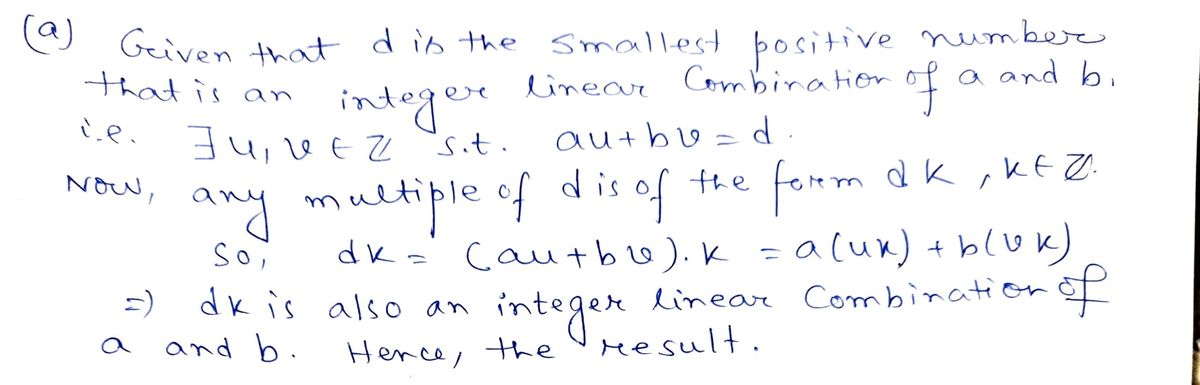 (a) Given that d is the smallest positive number
that is an integer linear Combination of a and b.
i.e. ∃ u, v ∈ ℤ s.t. au + bv = d.
Now, any multiple of d is of the form dk, k ∈ ℤ.
So, dk = (au + bv).k = a(uk) + b(vk)
=) dk is also an integer linear Combination of
a and b. Hence, the result.